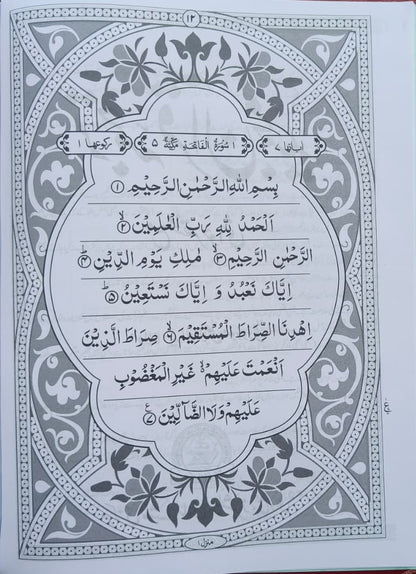 ١٢
اٰیاتها ٧
١ سُوْرَةُ الْفَاتِحَةِ مَکِّیَّةٌ ٥
رکوعها ١
بِسْمِ اللهِ الرَّحْمٰنِ الرَّحِیْمِ ۝١
اَلْحَمْدُ لِلّٰهِ رَبِّ الْعٰلَمِیْنَ ۙ۝٢
الرَّحْمٰنِ الرَّحِیْمِ ۙ۝٣ مٰلِكِ یَوْمِ الدِّیْنِ ؕ۝٤
اِیَّاكَ نَعْبُدُ وَ اِیَّاكَ نَسْتَعِیْنُ ؕ۝٥
اِهْدِنَا الصِّرَاطَ الْمُسْتَقِیْمَ ۙ۝٦ صِرَاطَ الَّذِیْنَ
اَنْعَمْتَ عَلَیْهِمْ ۙ۬ غَیْرِ الْمَغْضُوْبِ
عَلَیْهِمْ وَلَا الضَّآلِّیْنَ ۠۝٧
منزل ١